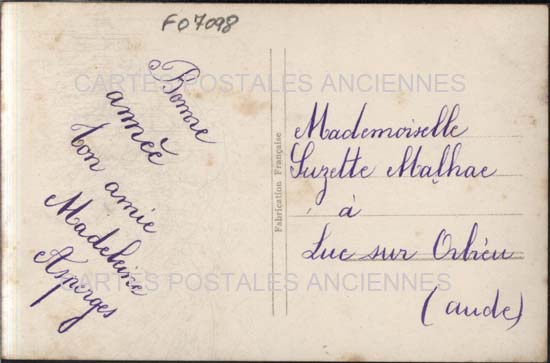 F07098
CARTES POSTALES ANCIENNES
Bonne
année
ton amie
Madeleine
Asperges
Fabrication Française
Mademoiselle
Suzette Malhac
à
Luc sur Orbieu
(aude)
CARTES POSTALES ANCIENNES